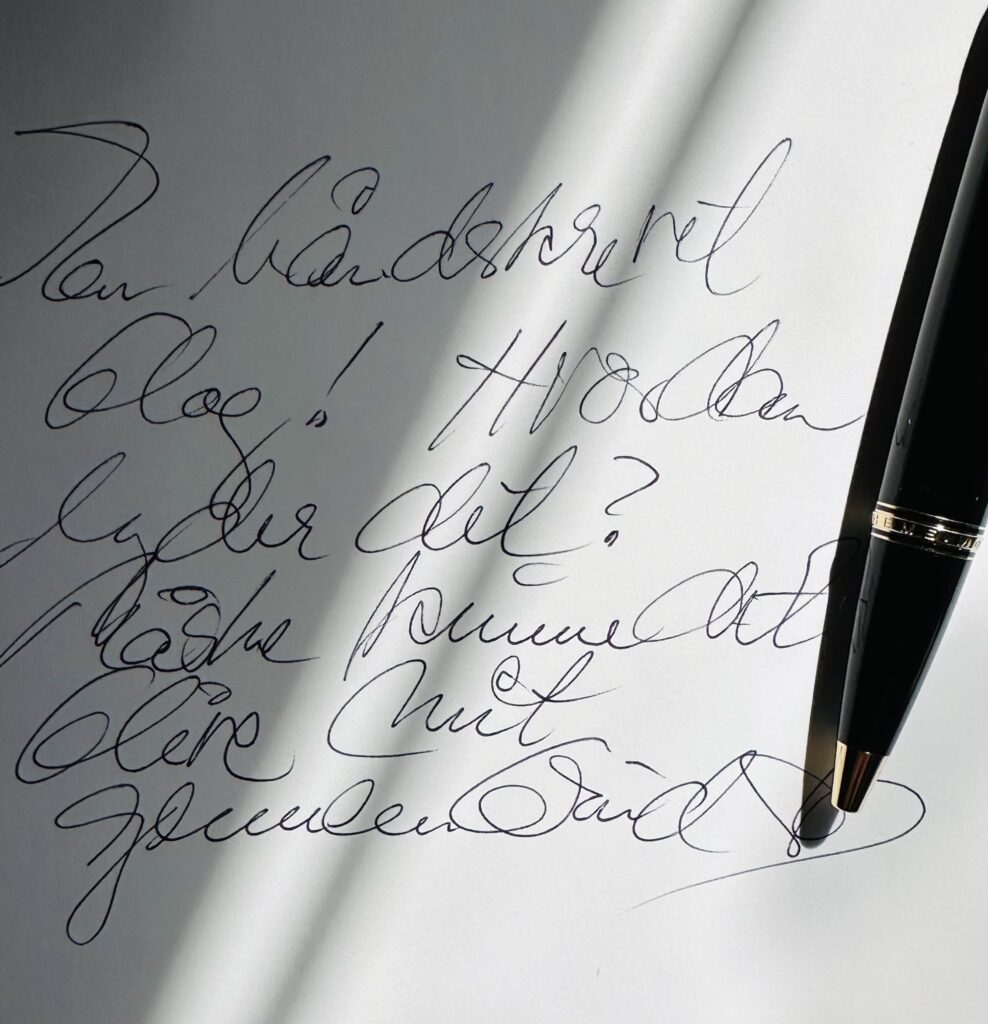 Den håndskrevet
blog! Hvordan
lyder det?
Måske kunne det
blive mit
gennembrud